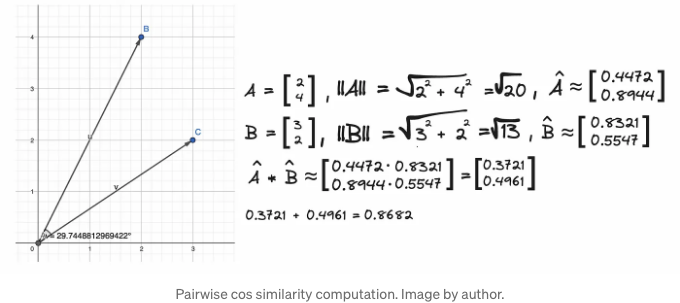 B
4
3
C
2
u
v
1
α = 29.7448812969422°
0 1 2 3
A = [2 4], ||A|| = √2² + 4² = √20, Â ≈ [0.4472 0.8944]
B = [3 2], ||B|| = √3² + 2² = √13, B̂ ≈ [0.8321 0.5547]
Â * B̂ ≈ [0.4472 · 0.8321 0.8944 · 0.5547] = [0.3721 0.4961]
0.3721 + 0.4961 = 0.8682
Pairwise cos similarity computation. Image by author.